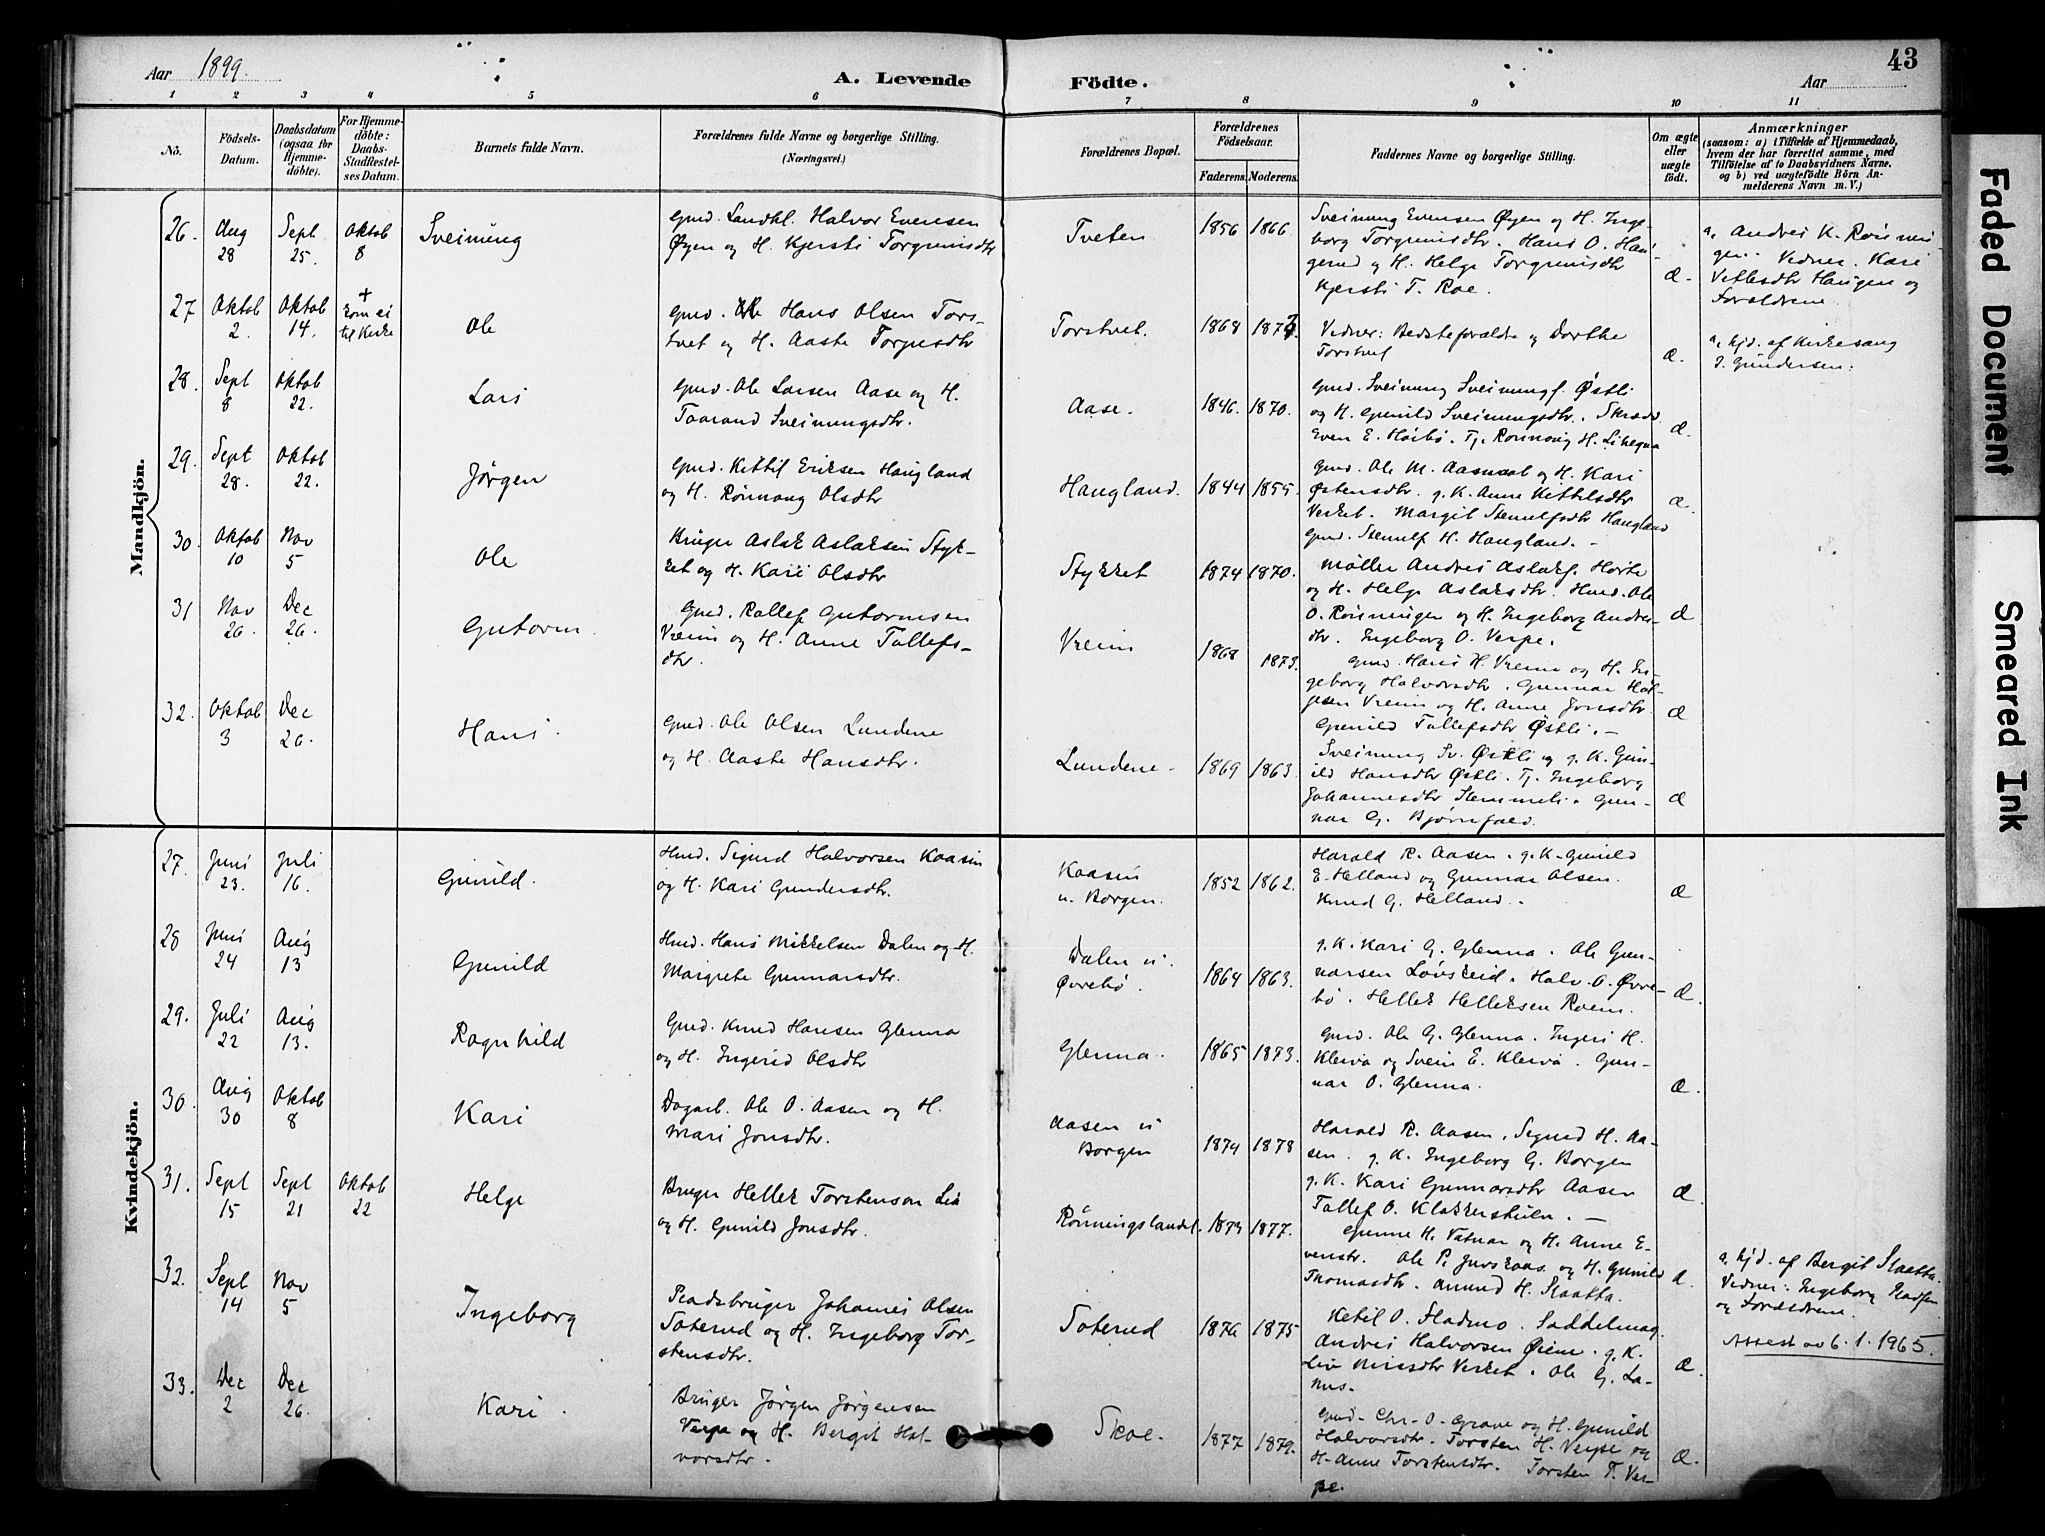 43
Aar 1899.
A. Levende Födte.
Aar
1 2 3 4 5 6 7 8 9 10 11
No.
Födsels-Datum.
Daabsdatum (ogsaa for Hjemme-döbte).
For Hjemme-döbte: Daabs-Stadfæstel-ses Datum.
Barnets fulde Navn.
Forældrenes fulde Navne og borgerlige Stilling.
(Næringsvei.)
Forældrenes Bopæl.
Forældrenes Födselsaar.
Faderens. Moderens.
Faddernes Navne og borgerlige Stilling.
Om ægte eller uægte födt.
Anmærkninger
(saasom: a) i Tilfælde af Hjemmedaab,
hvem der har forrettet samme, med
Tilföielse af to Daabsvidners Navne.
og b) ved uægtefödte Börn An-
melderens Navn m. V.)
Mandkjön.
26. Aug 28 Sept 25. Oktob 8 Sveinung
Gmd. Landhl. Halvor Evensen
Øygen og H. Kjersti Torgrimsdtr
Tveten 1856 1866
Sveinung Evensen Øygen og H. Inge-
borg Torgrimsdtr. Hans O. Hau-
gerud og H. Helge Torgrimsdtr
Kjersti T. Roe. Æ.
a, Andres K. Røsnin-
gen. Vedner. Kari
Vetlesdtr Haugen og
Forældrene.
27 Oktob 2. Oktob 14. + kom ei til Kirke Ole
Gmd. Hans Olsen Tors-
tvet og H. Aaste Torgusdtr
Torstvet. 1868
Vidner: Bedsteforældre og Dorthe
Torstvet Æ.
a, hjd. af Kirkesang
J. Gundersen.
28. Sept 8 Oktob 22. Lars
Gmd. Ole Larsen Aase og H.
Taarand Sveinungsdtr.
Aase. 1846. 1870.
Gmd. Sveinung Sveinungs. Østli
og H. Gunild Sveinungsdtr.
Even E. Hørbø. Tj. Rønnoug H. Æ.
29. Sept 28. Oktob 22. Jørgen
Gmd. Kittil Eriksen Haugland
og H. Rønnaug Olsdtr
Haugland. 1844 1855.
Gmd. Ole M. Aasnaab og H. Kari
Østensdtr. g. K. Anne Kittilsdtr
Verket. Margit Stenulfsdtr Haugland
Gmd. Stenulf H. Haugland. Æ.
30. Oktob 10 Nov 5 Ole
Bruger Aslak Aslaksen Styk-
ket og H. Kari Olsdtr
Stykket 1874 1870.
Møller Andres Aslaks. Hørte
og H. Helge Aslaksdtr. Hmd. Ole
O. Røisningen og H. Ingeborg Andres-
dtr. Ingeborg O. Verpe. Æ
31 Nov 26. Dec 26. Gutorm.
Gmd. Rollef Gutormsen
Vreim og H. Anne Tollefs-
dtr.
Vreim 1868 1873.
Gmd. Hans H. Vreim og H. In-
geborg Halvorsdtr. Gunnar Hal-
gesen Vreim og H. Anne Jonsdtr.
Gunild Tollefsdtr Østli. Æ
32. Oktob 3 Dec 26. Hans.
Gmd. Ole Olsen Lundene
og H. Aaste Hansdtr.
Lundene. 1869 1863.
Sveinung Sv. Østli og g. K. Gun-
ild Hansdtr Østli. Tj. Ingeborg
Johannesdtr Stemmeli. Gun-
nar G. Bjørnfald. Æ
Kvindekjön.
27. Juni 23. Juli 16. Gunild.
Hmd. Sigurd Halvorsen Kaasin
og H. Kari Gundersdtr.
Kaasin
u. Borgen. 1852 1862.
Harald R. Aasen. g. K. Gunild
E. Helland og Gunnar Olsen.
Knud G. Helland. Æ
28 Juni 24 Aug 13 Gunild
Hmd. Hans Mikkelsen Dalen og H.
Margrete Gunnarsdtr.
Dalen u.
Øvrebø. 1864 1863.
g. K. Kari G. Glenna. Ole Gun-
narsen Lønskeid. Halv. O. Øvre-
bø. Hellek Helleksen Roem. Æ.
29. Juli 22 Aug 13. Ragnhild
Gmd. Knud Hansen Glenna
og H. Ingerid Olsdtr
Glenna. 1865 1873.
Gmd. Ole G. Glenna. Ingeri H.
Kleiva og Svein E. Kleiva. Gun-
nar O. Glenna. Æ.
30. Aug 30 Oktob 8 Kari
Dagarb. Ole O. Aasen og H.
Mari Jonsdtr.
Aasen u
Borgen 1874 1878
Harald R. Aasen. Sigurd H. Aa-
sen. g. K. Ingeborg G. Borgen
g. K. Kari Gunnarsdtr Aasen
Tollef O. Klakkershulen. Æ
31. Sept 15 Sept 21 Oktob 22 Helge
Bruger Hellek Torstenson Lia
og H. Gunild Jonsdtr.
Rønningslandet. 1873 1877.
Gunne H. Vatnar og H. Anne E-
vensdtr. Ole P. Juvskaas og H. Gunild
Thomasdtr. Amund H. Slaatta. Æ.
a, hjd. af Bergit Slaatta.
Vedner: Ingeborg
og Forældrene.
32. Sept 14 Nov 5 Ingeborg
Pladsbruger Johannes Olsen
Soterud og H. Ingeborg Tor-
stensdtr.
Soterud 1876 1875
Ketil O. Fladmo. Saddelmag.
Andres Halvorsen Øiene. g. K.
Liv Nirisdtr Verket. Ole G. La-
nus. Æ
Attest av 6.1.1965.
33. Dec 2 Dec 26. Kari.
Bruger Jørgen Jørgensen
Verpe og H. Bergit Hal-
vorsdtr.
Skoe. 1877 1879.
Gmd. Chr. O. Grave og H. Gunild
Halvorsdtr. Torsten H. Verpe og
H. Anne Torstensdtr. Torsten T. Ver-
pe. Æ.
Faded Document
Smeared Ink